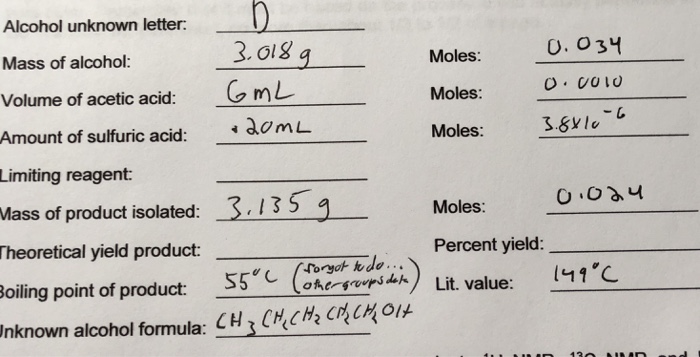 Alcohol unknown letter: D
Mass of alcohol: 3.018 g Moles: 0.034
Volume of acetic acid: 6 mL Moles: 0.0010
Amount of sulfuric acid: .20mL Moles: 3.8x10-6
Limiting reagent:
Mass of product isolated: 3.135 g Moles: 0.024
Theoretical yield product: Percent yield:
Boiling point of product: 55°C (forgot to do... other groups data) Lit. value: 149°C
Unknown alcohol formula: CH3CH2CH2CH2CH2OH